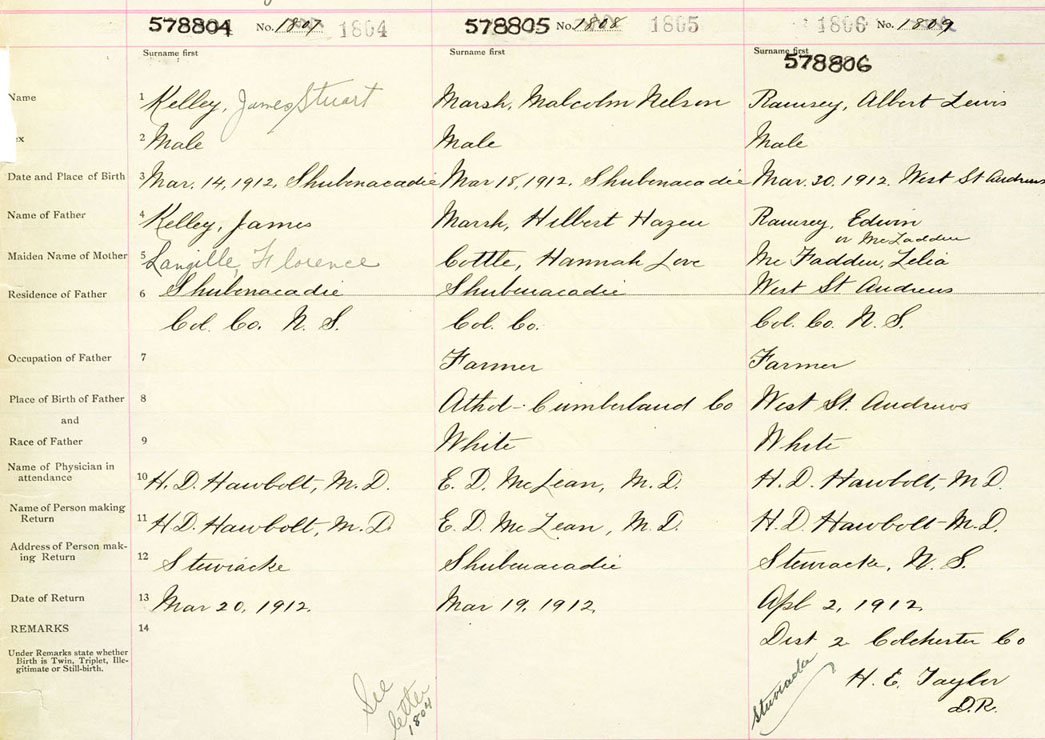 578804 No. 1807 1804 578805 No. 1808 1805 1806 No. 1809
Surname first Surname first Surname first
578806
Name 1 Kelley, James Stuart Marsh, Malcolm Nelson Ramsey, Albert Lewis
ex 2 Male Male Male
Date and Place of Birth 3 Mar. 14, 1912, Shubenacadie Mar 18, 1912. Shubenacadie Mar. 20. 1912. West St Andrews
Name of Father 4 Kelley, James Marsh, Hilbert Hazen Ramsey, Edwin
or McLadden
Maiden Name of Mother 5 Langille, Florence Cottle, Hannah Love Mc Fadden, Zelia
Residence of Father 6 Shubenacadie Shubenacadie West St Andrews
Col. Co. N. S. Col. Co. Col. Co. N. S.
Occupation of Father 7 Farmer Farmer
Place of Birth of Father 8 Athol - Cumberland Co West St. Andrews
and
Race of Father 9 White White
Name of Physician in
attendance 10 H. D. Hawbolt, M. D. E. D. McLean, M. D. H. D. Hawbolt, M D.
Name of Person making
Return 11 H D. Hawbolt, M. D E. D. McLean, M. D. H. D. Hawbolt - M. D.
Address of Person mak-
ing Return 12 Stewiacke Shubenacadie Stewiacke, N. S.
Date of Return 13 Mar 20, 1912. Mar 19, 1912, Apl 2, 1912.
REMARKS 14 Dist 2 Colchester Co
Under Remarks state whether
Birth is Twin, Triplet, Ille-
gitimate or Still-birth.
H. E. Taylor
D. R.
Stewiacke
See
letter
1804